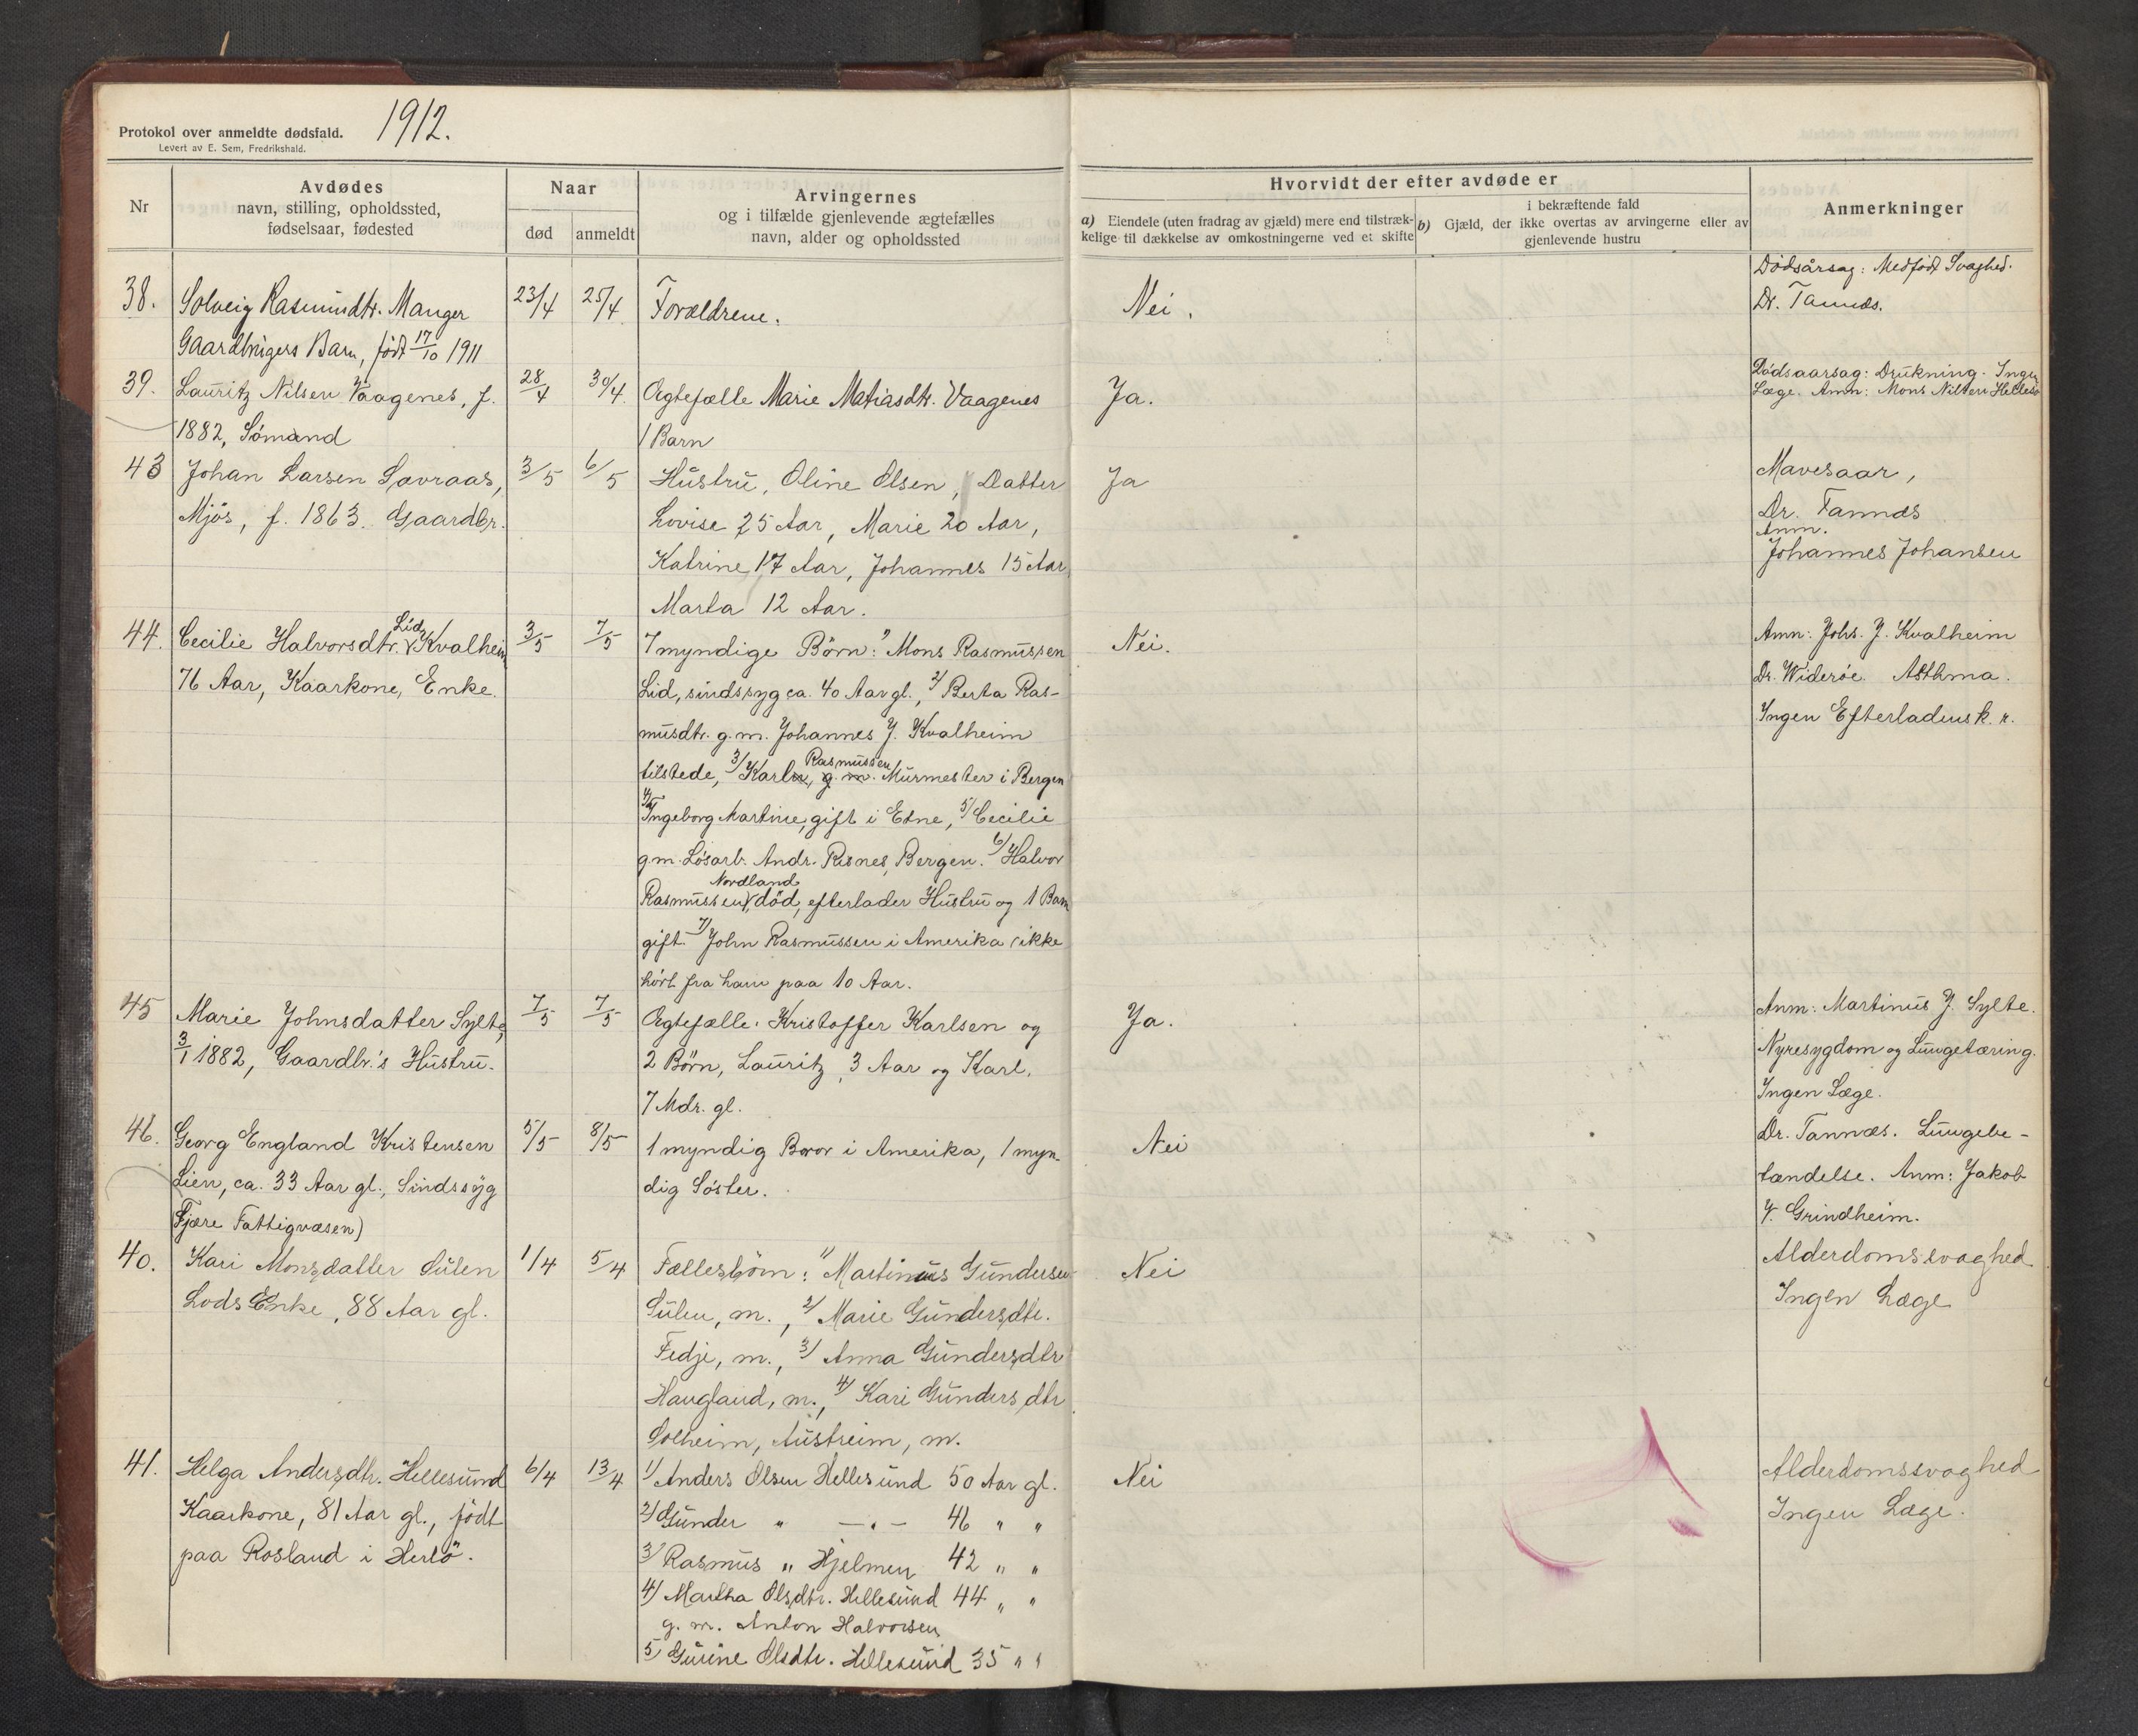 1912.
Protokol over anmeldte dødsfald.
Levert av E. Sem, Fredrikshald.
Nr
Avdødes
navn, stilling, opholdssted,
fødselsaar, fødested
Naar
død
anmeldt
Arvingernes
og i tilfælde gjenlevende ægtefælles
navn, alder og opholdssted
Hvorvidt der efter avdøde er
a) Eiendele (uten fradrag av gjæld) mere end tilstræk-
kelige til dækkelse av omkostningerne ved et skifte
i bekræftende fald
b) Gjæld, der ikke overtas av arvingerne eller av
gjenlevende hustru
Anmerkninger
38.
Solveig Rasmusdtr. Manger
Gaardbrugers Barn, født 17/10 1911
23/4
25/4
Forældrene.
Nei.
Dødsårsag: Medfødt Svaghed.
Dr. Tannæs.
39.
Lauritz Nilsen Vaagenes, f.
1882, Sömand
28/4
30/4.
Ægtefælle Marie Matiasdtr. Vaagenes
1 Barn
Ja.
Dödsaarsag: Drukning. Ingen
Læge. Anm: Mons Nilsen Hellesö
43
Johan Larsen Sævraas,
Mjös, f. 1863. Gaardbr.
3/5
6/5
Hustru, Oline Olsen, Datter
Lovise 25 Aar, Marie 20 Aar,
Katrine 17 Aar, Johannes 15 Aar,
Marta 12 Aar.
Ja
Mavesaar,
Dr. Tannæs
Anm.
Johannes Johansen
44.
Lid
Cecilie Halvorsdtr. Kvalheim
76 Aar, Kaarkone, Enke.
3/5
7/5
7 myndige Börn: 1/ Mons Rasmussen
Lid, sindssyg ca. 40 Aar gl., 2/ Berta Ras-
musdtr. g.m. Johannes J. Kvalheim
Rasmussen
tilstede, 3/ Karl, g. m. Murmester i Bergen
4/ Ingeborg Martine, gift i Etne, 5/ Cecilie
g.m. Lösarb. Andr. Risnes, Bergen. 6/ Halvor
Nordland
Rasmussen, död, efterlader Hustru og 1 Barn
gift. 7/ John Rasmussen i Amerika (ikke
hört fra ham paa 10 Aar.
Nei.
Anm: Johs. J. Kvalheim
Dr. Wideröe. Asthma.
Ingen Efterladensk. r.
45
Marie Johnsdatter Sylte,
3/1 1882, Gaardbr.'s Hustru.
7/5
7/5
Ægtefælle: Kristoffer Karlsen og
2 Börn, Lauritz, 3 Aar og Karl,
7 Mdr. gl.
Ja.
Anm: Martinus J. Sylte.
Nyresygdom og Lungetæring.
Ingen Læge.
46.
Georg England Kristensen
Lien, ca. 33 Aar gl., Sindssyg
Fjære Fattigvæsen)
5/5
8/5
1 myndig Bror i Amerika, 1 myn-
dig Söster.
Nei
Dr. Tannæs. Lungebe-
tændelse. Anm: Jakob
J. Grindheim.
40.
Kari Monsdatter Sulen
Lods Enke, 88 Aar gl.
1/4
5/4
Fællesbörn: 1/ Martinus Gundersen
Sulen, m., 2/ Marie Gundersdtr.
Fedje, m., 3/ Anna Gundersdtr
Haugland, m., 4/ Kari Gundersdtr
Solheim, Austreim, m.
Nei
Alderdomssvaghed
Ingen Læge
41.
Helga Andersdtr. Hellesund
Kaarkone, 81 Aar gl., födt
paa Rosland i Herlö.
6/4
13/4
1/ Anders Olsen Hellesund 50 Aar gl.
2/ Gunder " —"— 46 " "
3/ Rasmus " Hjelmen 42 " "
4/ Martha Olsdtr. Hellesund 44 " "
g. m. Anton Halvorsen
5/ Gurine Olsdtr. Hellesund 35 " "
Nei
Alderdomssvaghed
Ingen Læge.